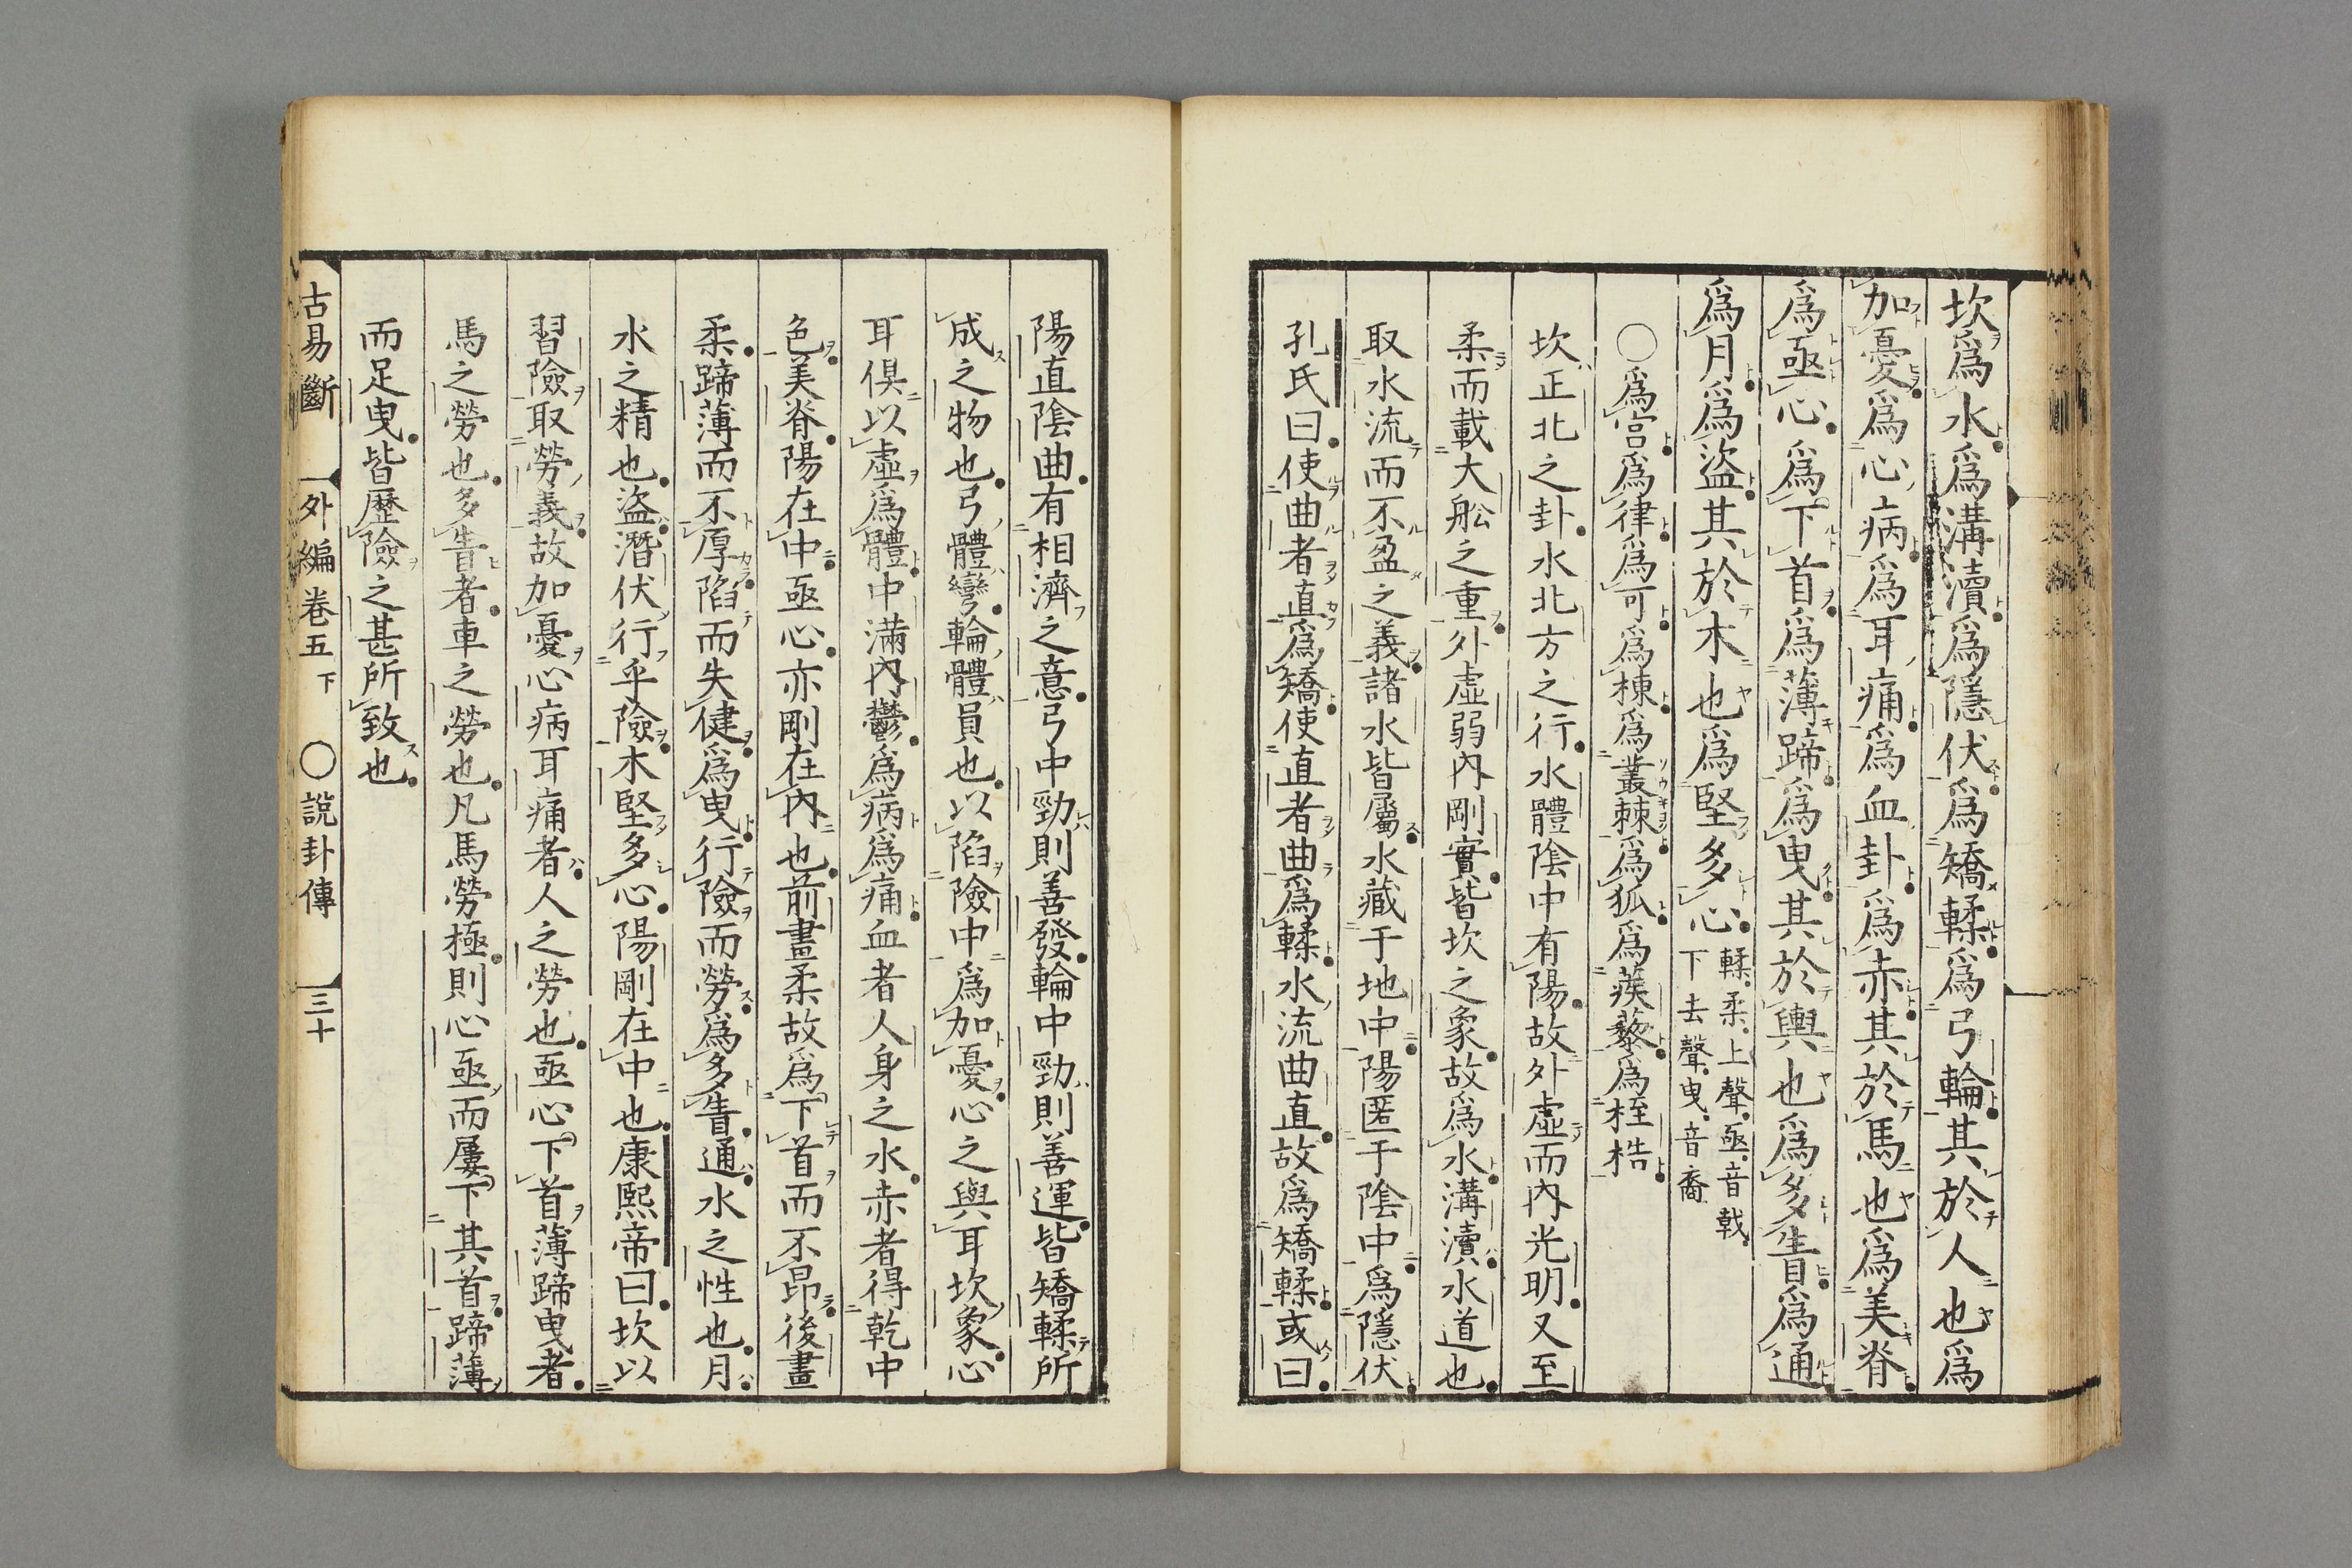 坎爲水爲溝瀆爲隱伏爲矯輮爲弓輪其於人也爲
加憂爲心病爲耳痛爲血卦爲赤其於馬也爲美脊
爲亟心爲下首爲薄蹄爲曳其於輿也爲多眚爲通
爲月爲盜其於木也爲堅多心輮柔上聲亟音戟
下去聲曳音裔
○爲宮爲律爲可爲棟爲叢棘爲狐爲蒺藜爲桎梏
坎正北之卦水北方之行水體陰中有陽故外虛而內光明又至
柔而載大舩之重外虛弱內剛實皆坎之象故爲水溝瀆水道也
取水流而不盈之義諸水皆屬水藏于地中陽匿于陰中爲隱伏
孔氏曰使曲者直爲矯使直者曲爲輮水流曲直故爲矯輮或曰
陽直陰曲有相濟之意弓中勁則善發輪中勁則善運皆矯輮所
成之物也弓體彎輪體員也以陷險中爲加憂心之與耳坎象心
耳俱以虛爲體中滿內鬱爲病爲痛血者人身之水赤者得乾中
色美脊陽在中亟心亦剛在內也前畫柔故爲下首而不昂後畫
柔蹄薄而不厚陷而失健爲曳行險而勞爲多眚通水之性也月
水之精也盜潛伏行乎險木堅多心陽剛在中也康熙帝曰坎以
習險取勞義故加憂心病耳痛者人之勞也亟心下首薄蹄曳者
馬之勞也多眚者車之勞也凡馬勞極則心亟而屢下其首蹄薄
而足曳皆歷險之甚所致也
古易斷 外編卷五下 ○說卦傳 三十